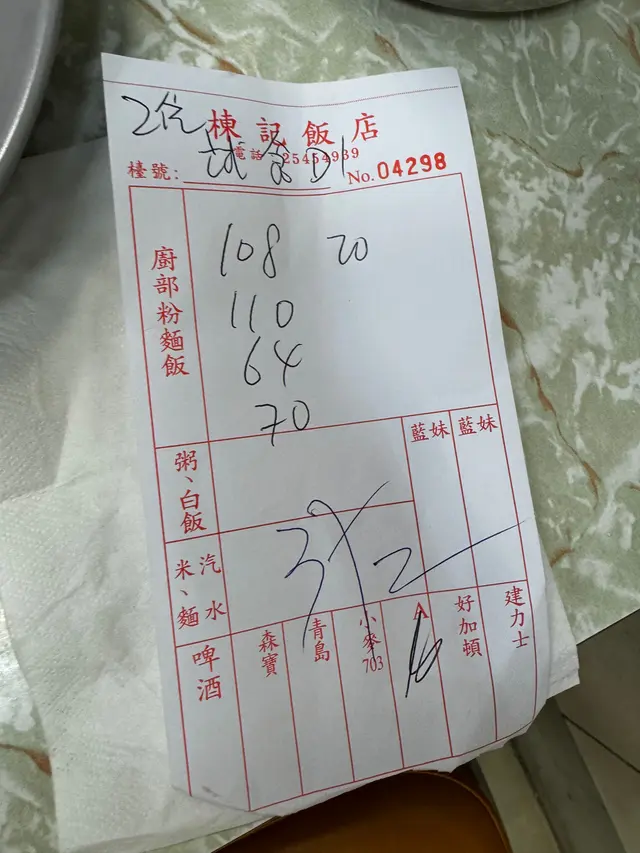 2位
棟記飯店
電話 25454939
檯號: D1 No. 04298
廚部粉麵飯
108 20
110
64
70
粥、白飯
藍妹 藍妹
汽水
米、麵
372
啤酒
森寶
青島
小麥703
好加頓
建力士